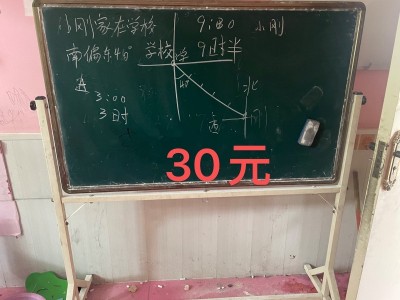 小刚家在学校 9:30 小刚
南偏东40° 学校 9时半
北
3:00
3时
30元